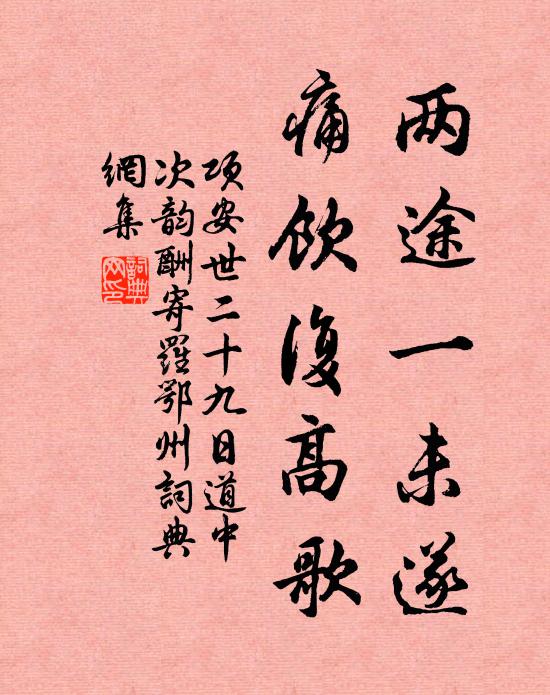 两途一未遂
痛饮复高歌
项安世二十九日道中
次韵酬寄羅鄂州詞典
網集
詞典網印